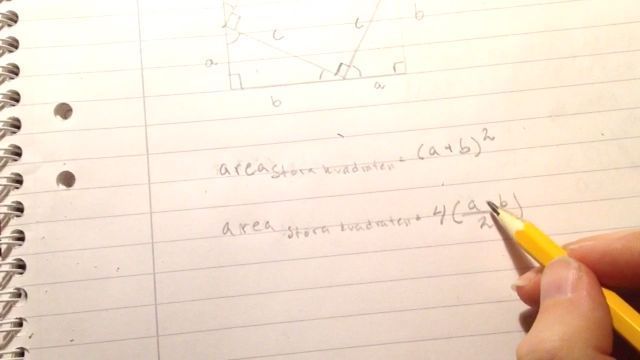 c c b
a
b a
area stora kvadraten = (a+b)²
area stora kvadraten = 4(a·b/2)